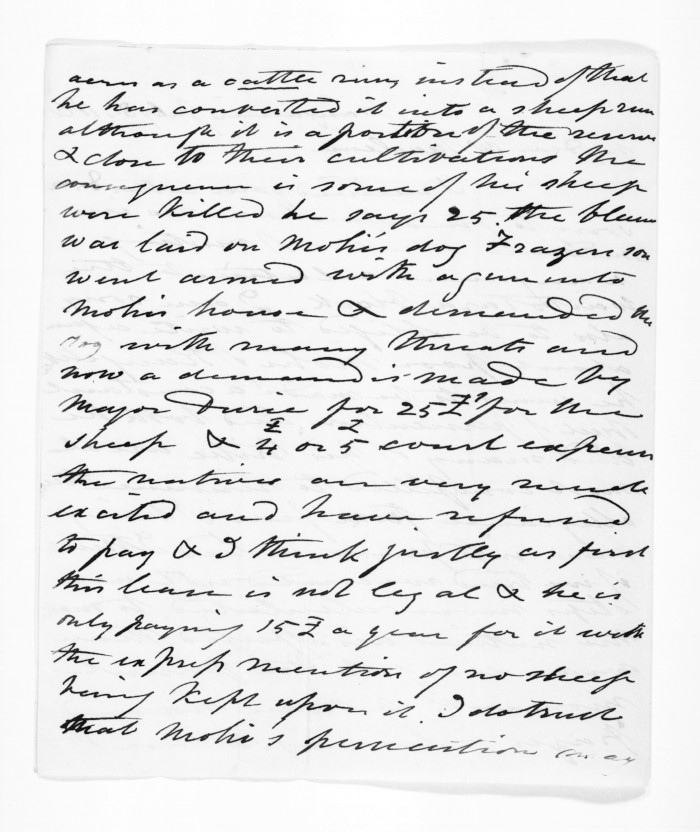 acres as a cattle run, instead of that
he has converted it into a sheep run
although it is a portion of the reserve
& close to their cultivations the
consequence is some of his sheep
were killed he says 25. the blame
was laid on Mohi's dog Frazer's son
went armed with a gun into
Mohis house & demanded the
dog with many threats and
now a demand is made by
Major Durie for 25£ for the
sheep & 4£ or 5£ court expenses
the natives are very much
excited and have refused
to pay & I think justly as first
this lease is not legal & he is
only paying 15£ a year for it with
the express mention of no sheep
being kept upon it. I do trust
that Mohi's persecution